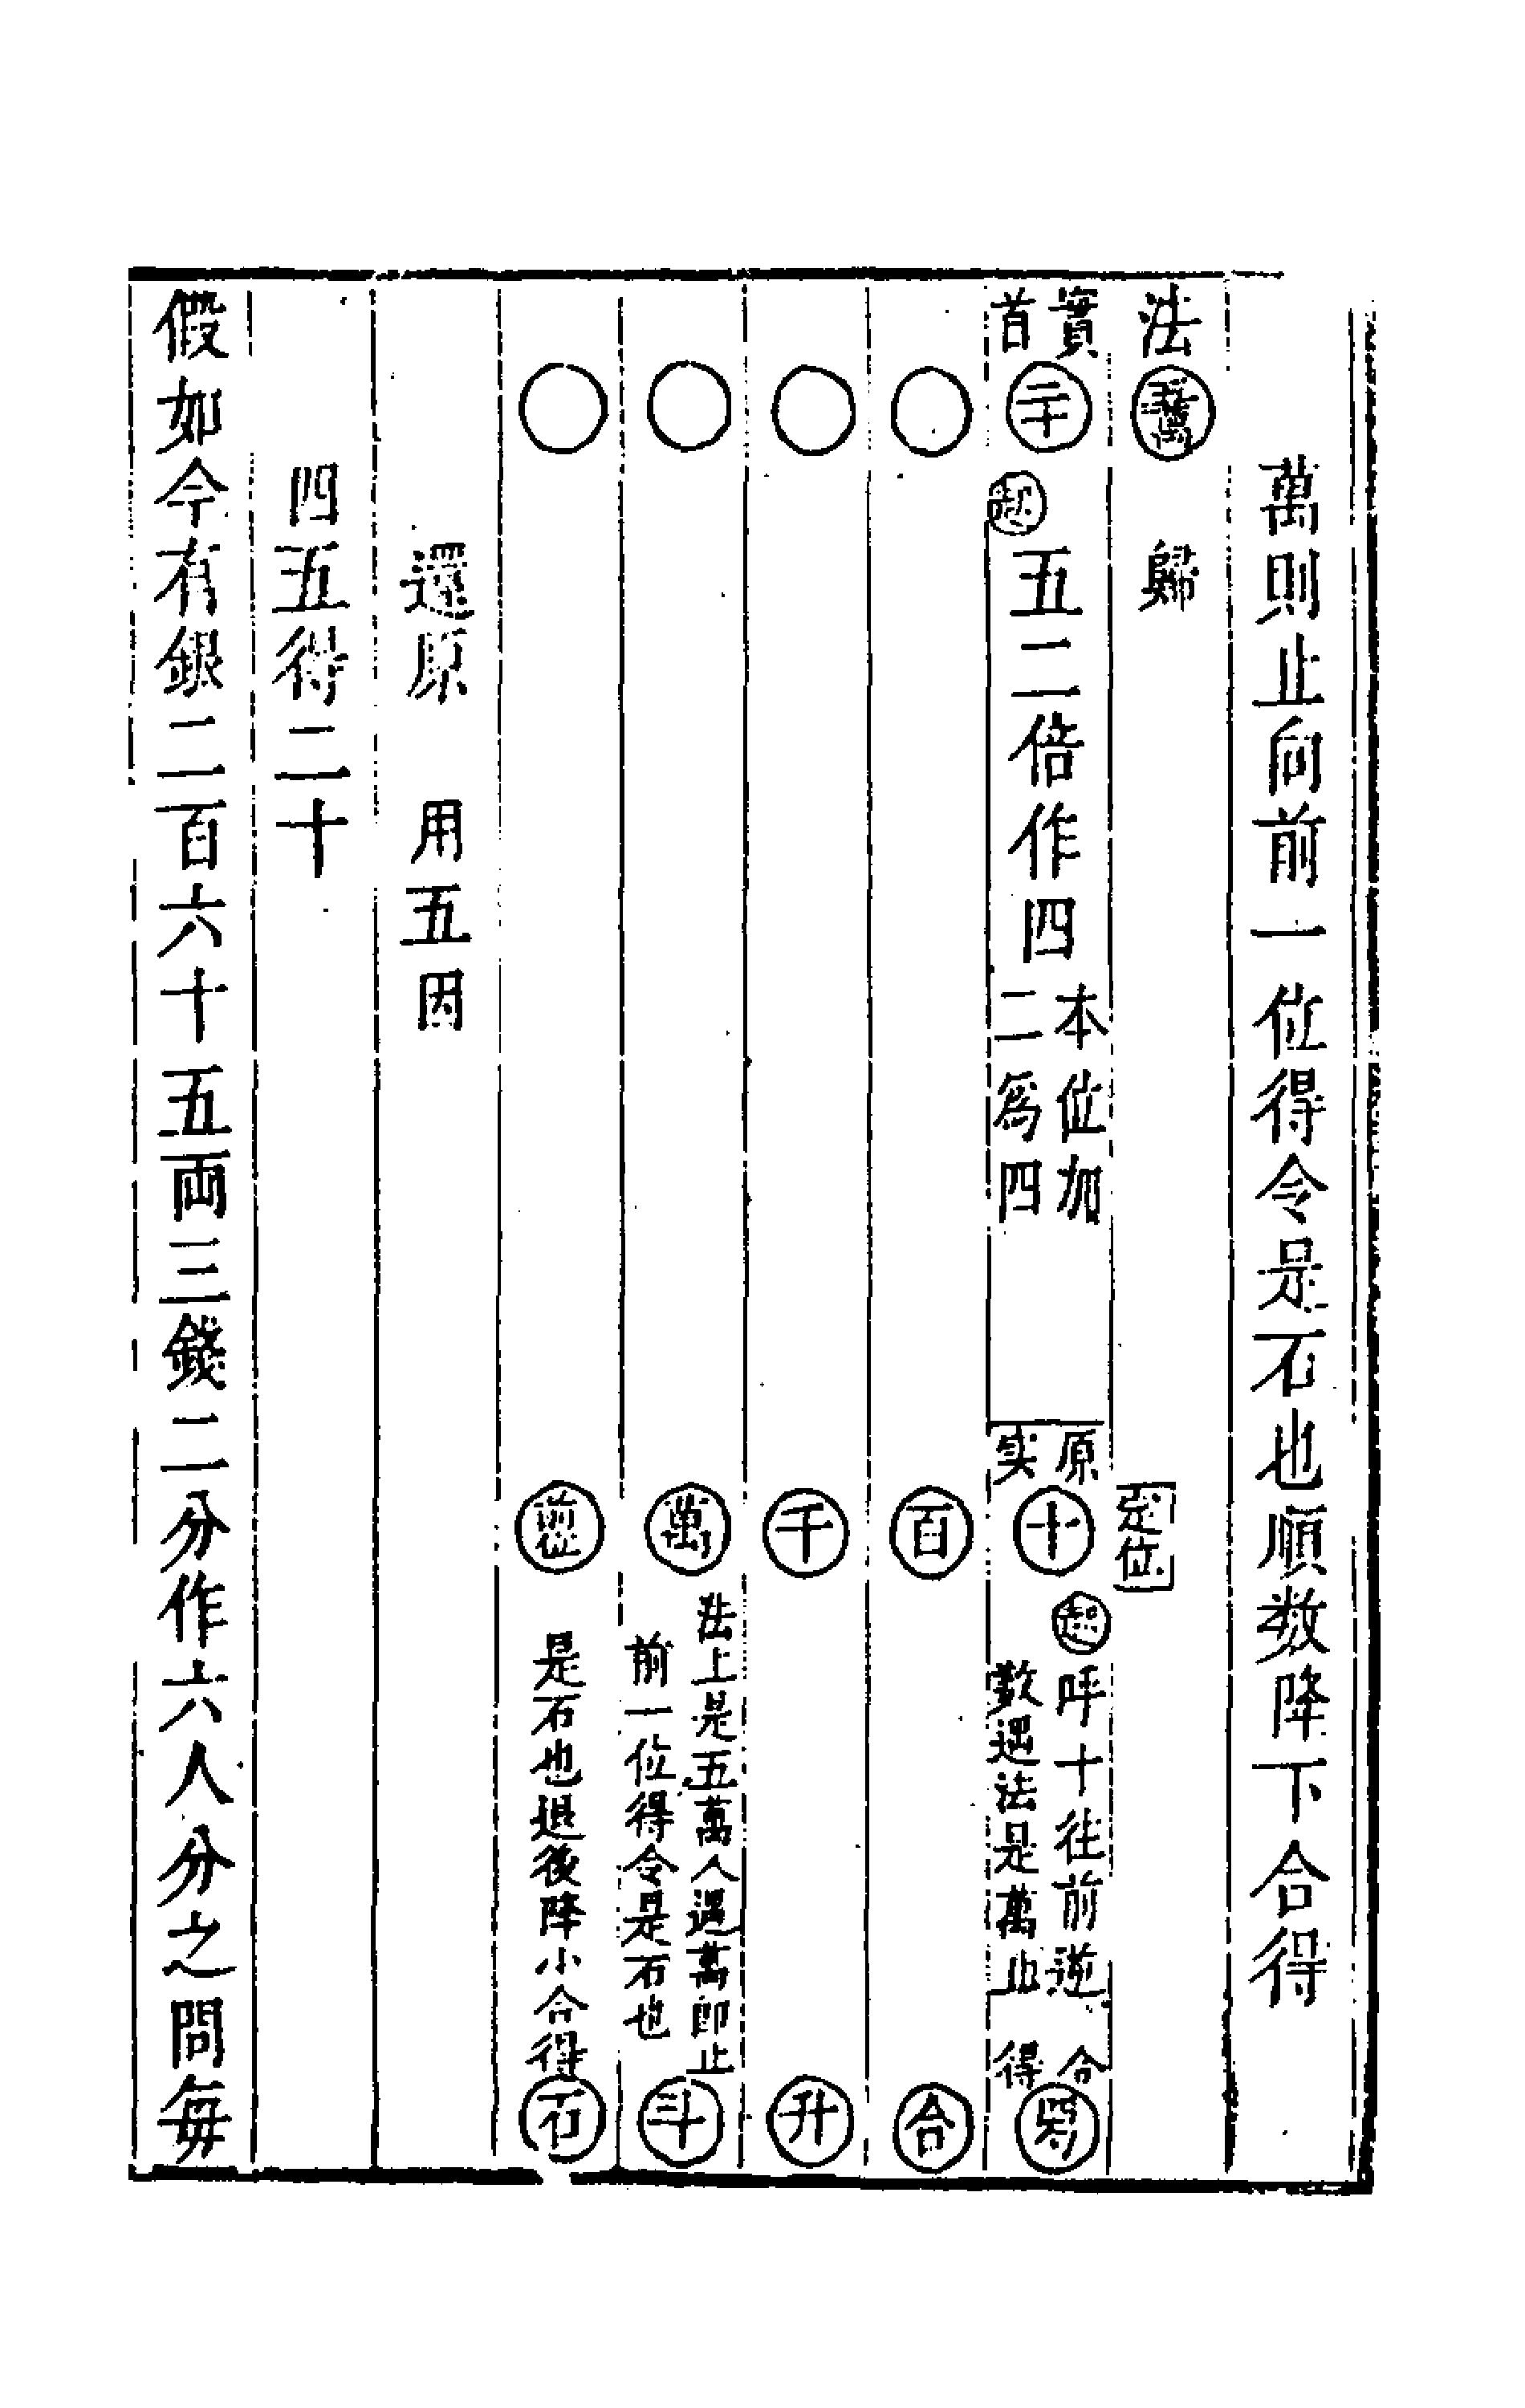 萬則止向前一位得令是石也順数降下合得
法 五萬 歸 定位
實首 二十 起 五二倍作四 本位加二爲四 原实 十 起 呼十往前逆數遇法是萬止 合得 四勺
〇 百 合
〇 千 升
〇 萬 法上是五萬人遇萬即止前一位得令是石也 斗
〇 前位 是石也退後降小合得 石
還原 用五因
四五得二十
假如今有銀二百六十五両三錢二分作六人分之問每